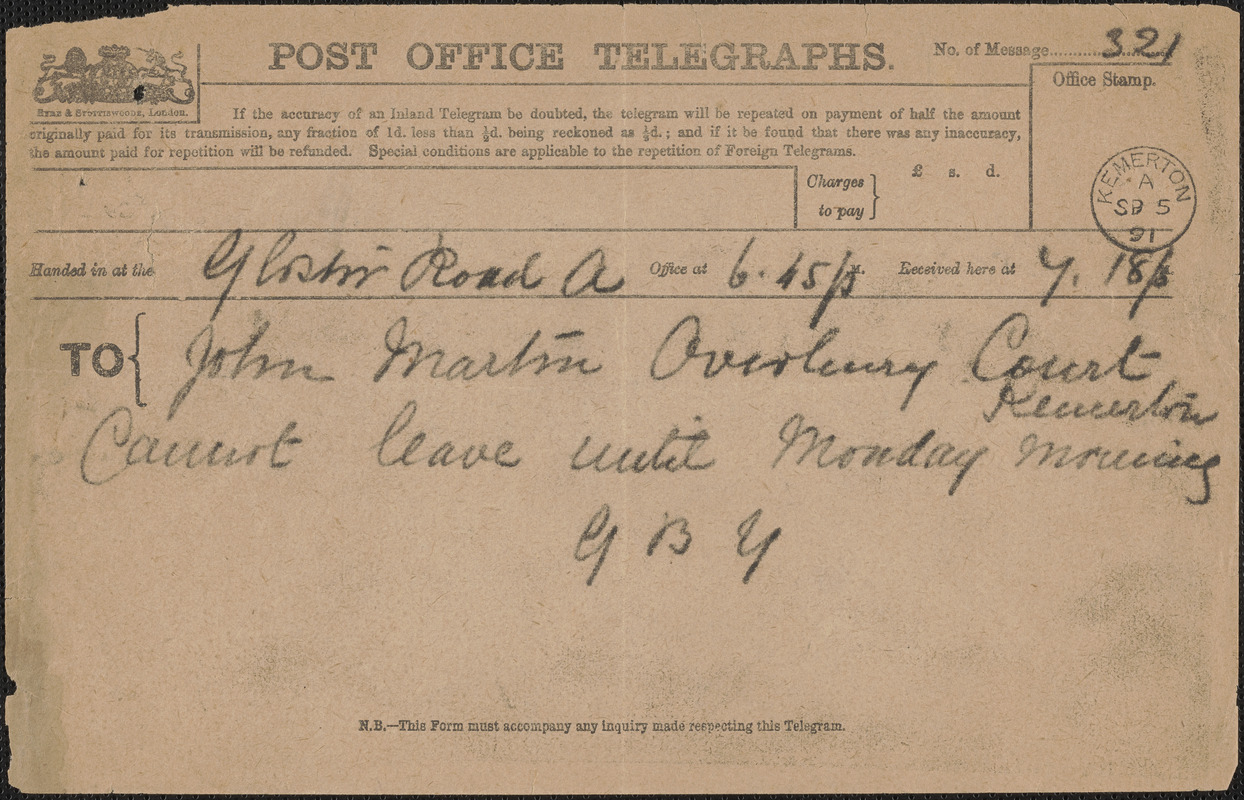 POST OFFICE TELEGRAPHS.
No. of Message 321
Office Stamp.
EYRE & SPOTTISWOODE, London.
If the accuracy of an Inland Telegram be doubted, the telegram will be repeated on payment of half the amount
originally paid for its transmission, any fraction of 1d. less than ½d. being reckoned as ½d.; and if it be found that there was any inaccuracy,
the amount paid for repetition will be refunded. Special conditions are applicable to the repetition of Foreign Telegrams.
Charges to pay } £ s. d.
KEMERTON
A
SP 5
91
Handed in at the Gloster Road A Office at 6.45 p.m. Received here at 7.18 p.m.
TO { John Martin Overbury Court
Kemerton
Cannot leave until Monday morning
G B Y
N.B.—This Form must accompany any inquiry made respecting this Telegram.